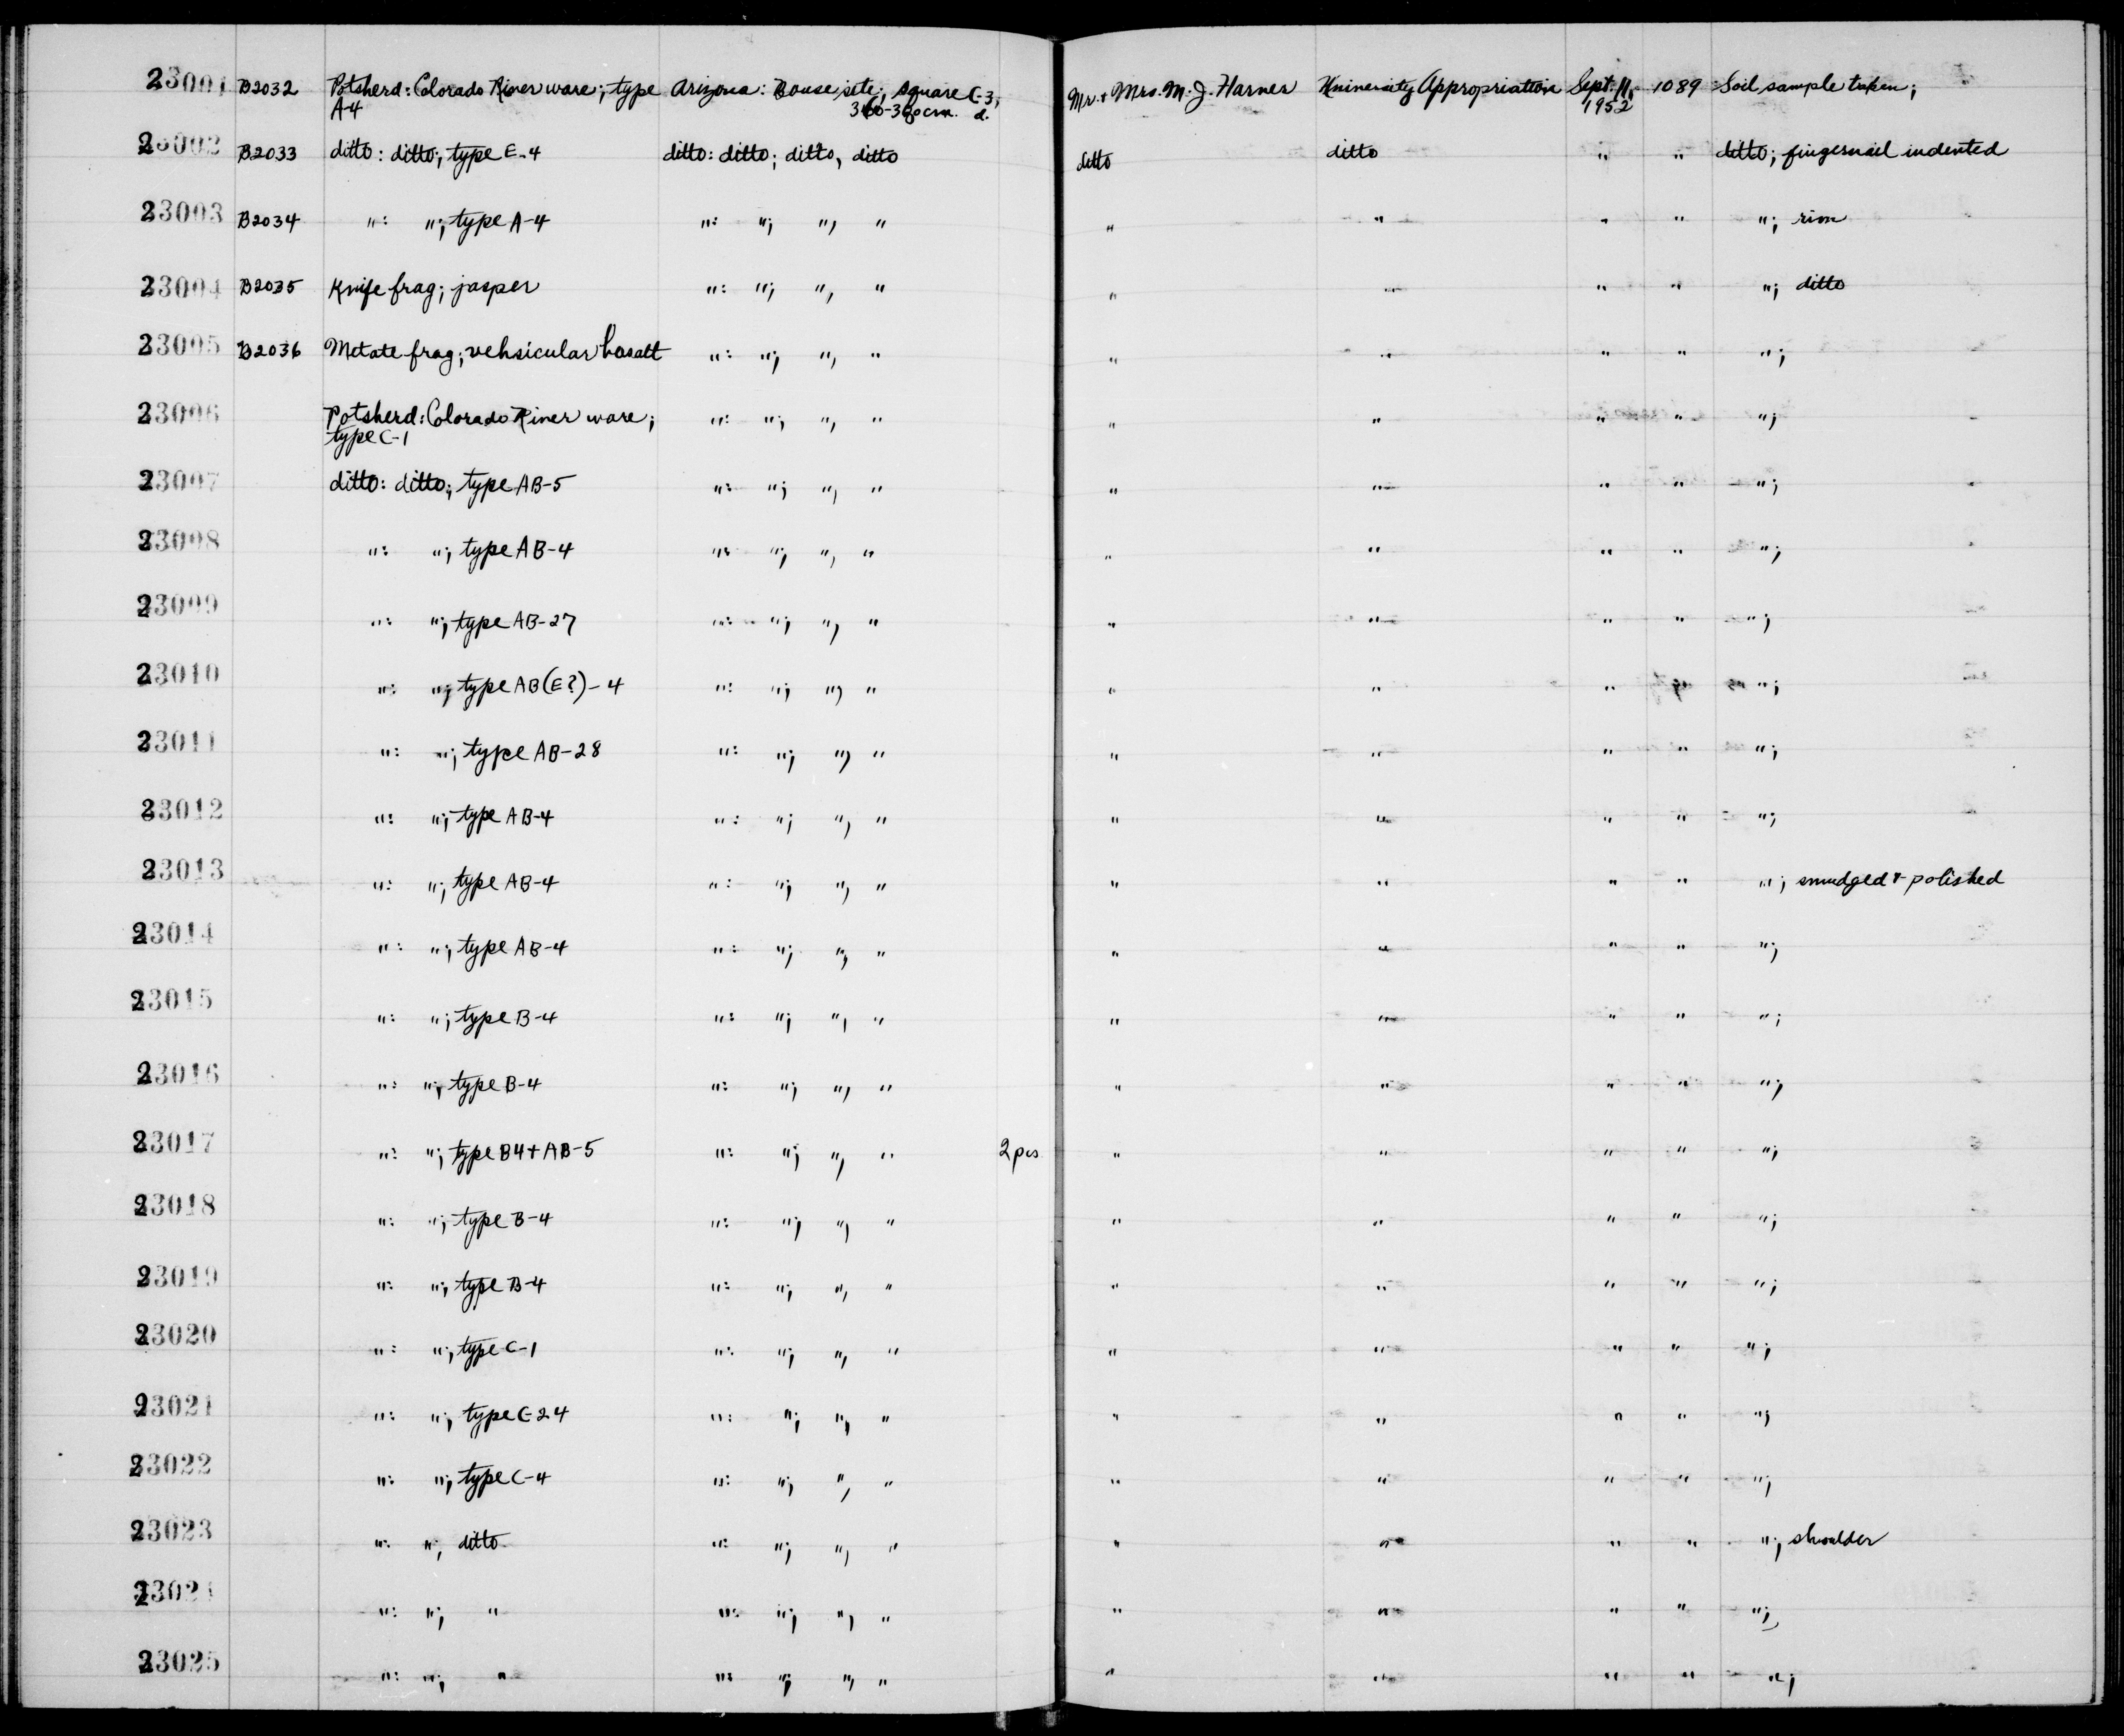 23001 B2032 Potsherd: Colorado River ware; type Arizona: Bouse site, square C-3, Mr. + Mrs. M. J. Harner University Appropriation Sept. 11, 1089 Soil sample taken;
A-4 cm. d. 1952
23002 B2033 ditto: ditto; type E-4 ditto: ditto; ditto, ditto ditto ditto " " ditto; fingernail indented
23003 B2034 ": "; type A-4 ": "; ", " " " " " "; rim
23004 B2035 Knife frag; jasper ": "; ", " " " " " "; ditto
23005 B2036 Metate frag; vehsicular basalt ": "; ", " " " " " ";
23006 Potsherd: Colorado River ware; ": "; ", " " " " " ";
type C-1
23007 ditto: ditto; type AB-5 ": "; ", " " " " " ";
23008 ": "; type AB-4 ": "; ", " " " " " ";
23009 ": "; type AB-27 ": "; ", " " " " " ";
23010 ": "; type AB(E?)-4 ": "; ", " " " " " ";
23011 ": "; type AB-28 ": "; ", " " " " " ";
23012 ": "; type AB-4 ": "; ", " " " " " ";
23013 ": "; type AB-4 ": "; ", " " " " " "; smudged + polished
23014 ": "; type AB-4 ": "; ", " " " " " ";
23015 ": "; type B-4 ": "; ", " " " " " ";
23016 ": "; type B-4 ": "; ", " " " " " ";
23017 ": "; type B4+AB-5 ": "; ", " 2 pcs " " " " ";
23018 ": "; type B-4 ": "; ", " " " " " ";
23019 ": "; type B-4 ": "; ", " " " " " ";
23020 ": "; type C-1 ": "; ", " " " " " ";
23021 ": "; type C-24 ": "; ", " " " " " ";
23022 ": "; type C-4 ": "; ", " " " " " ";
23023 ": "; ditto ": "; ", " " " " " "; shoulder
23024 ": "; " ": "; ", " " " " " ";
23025 ": "; " ": "; ", " " " " " ";